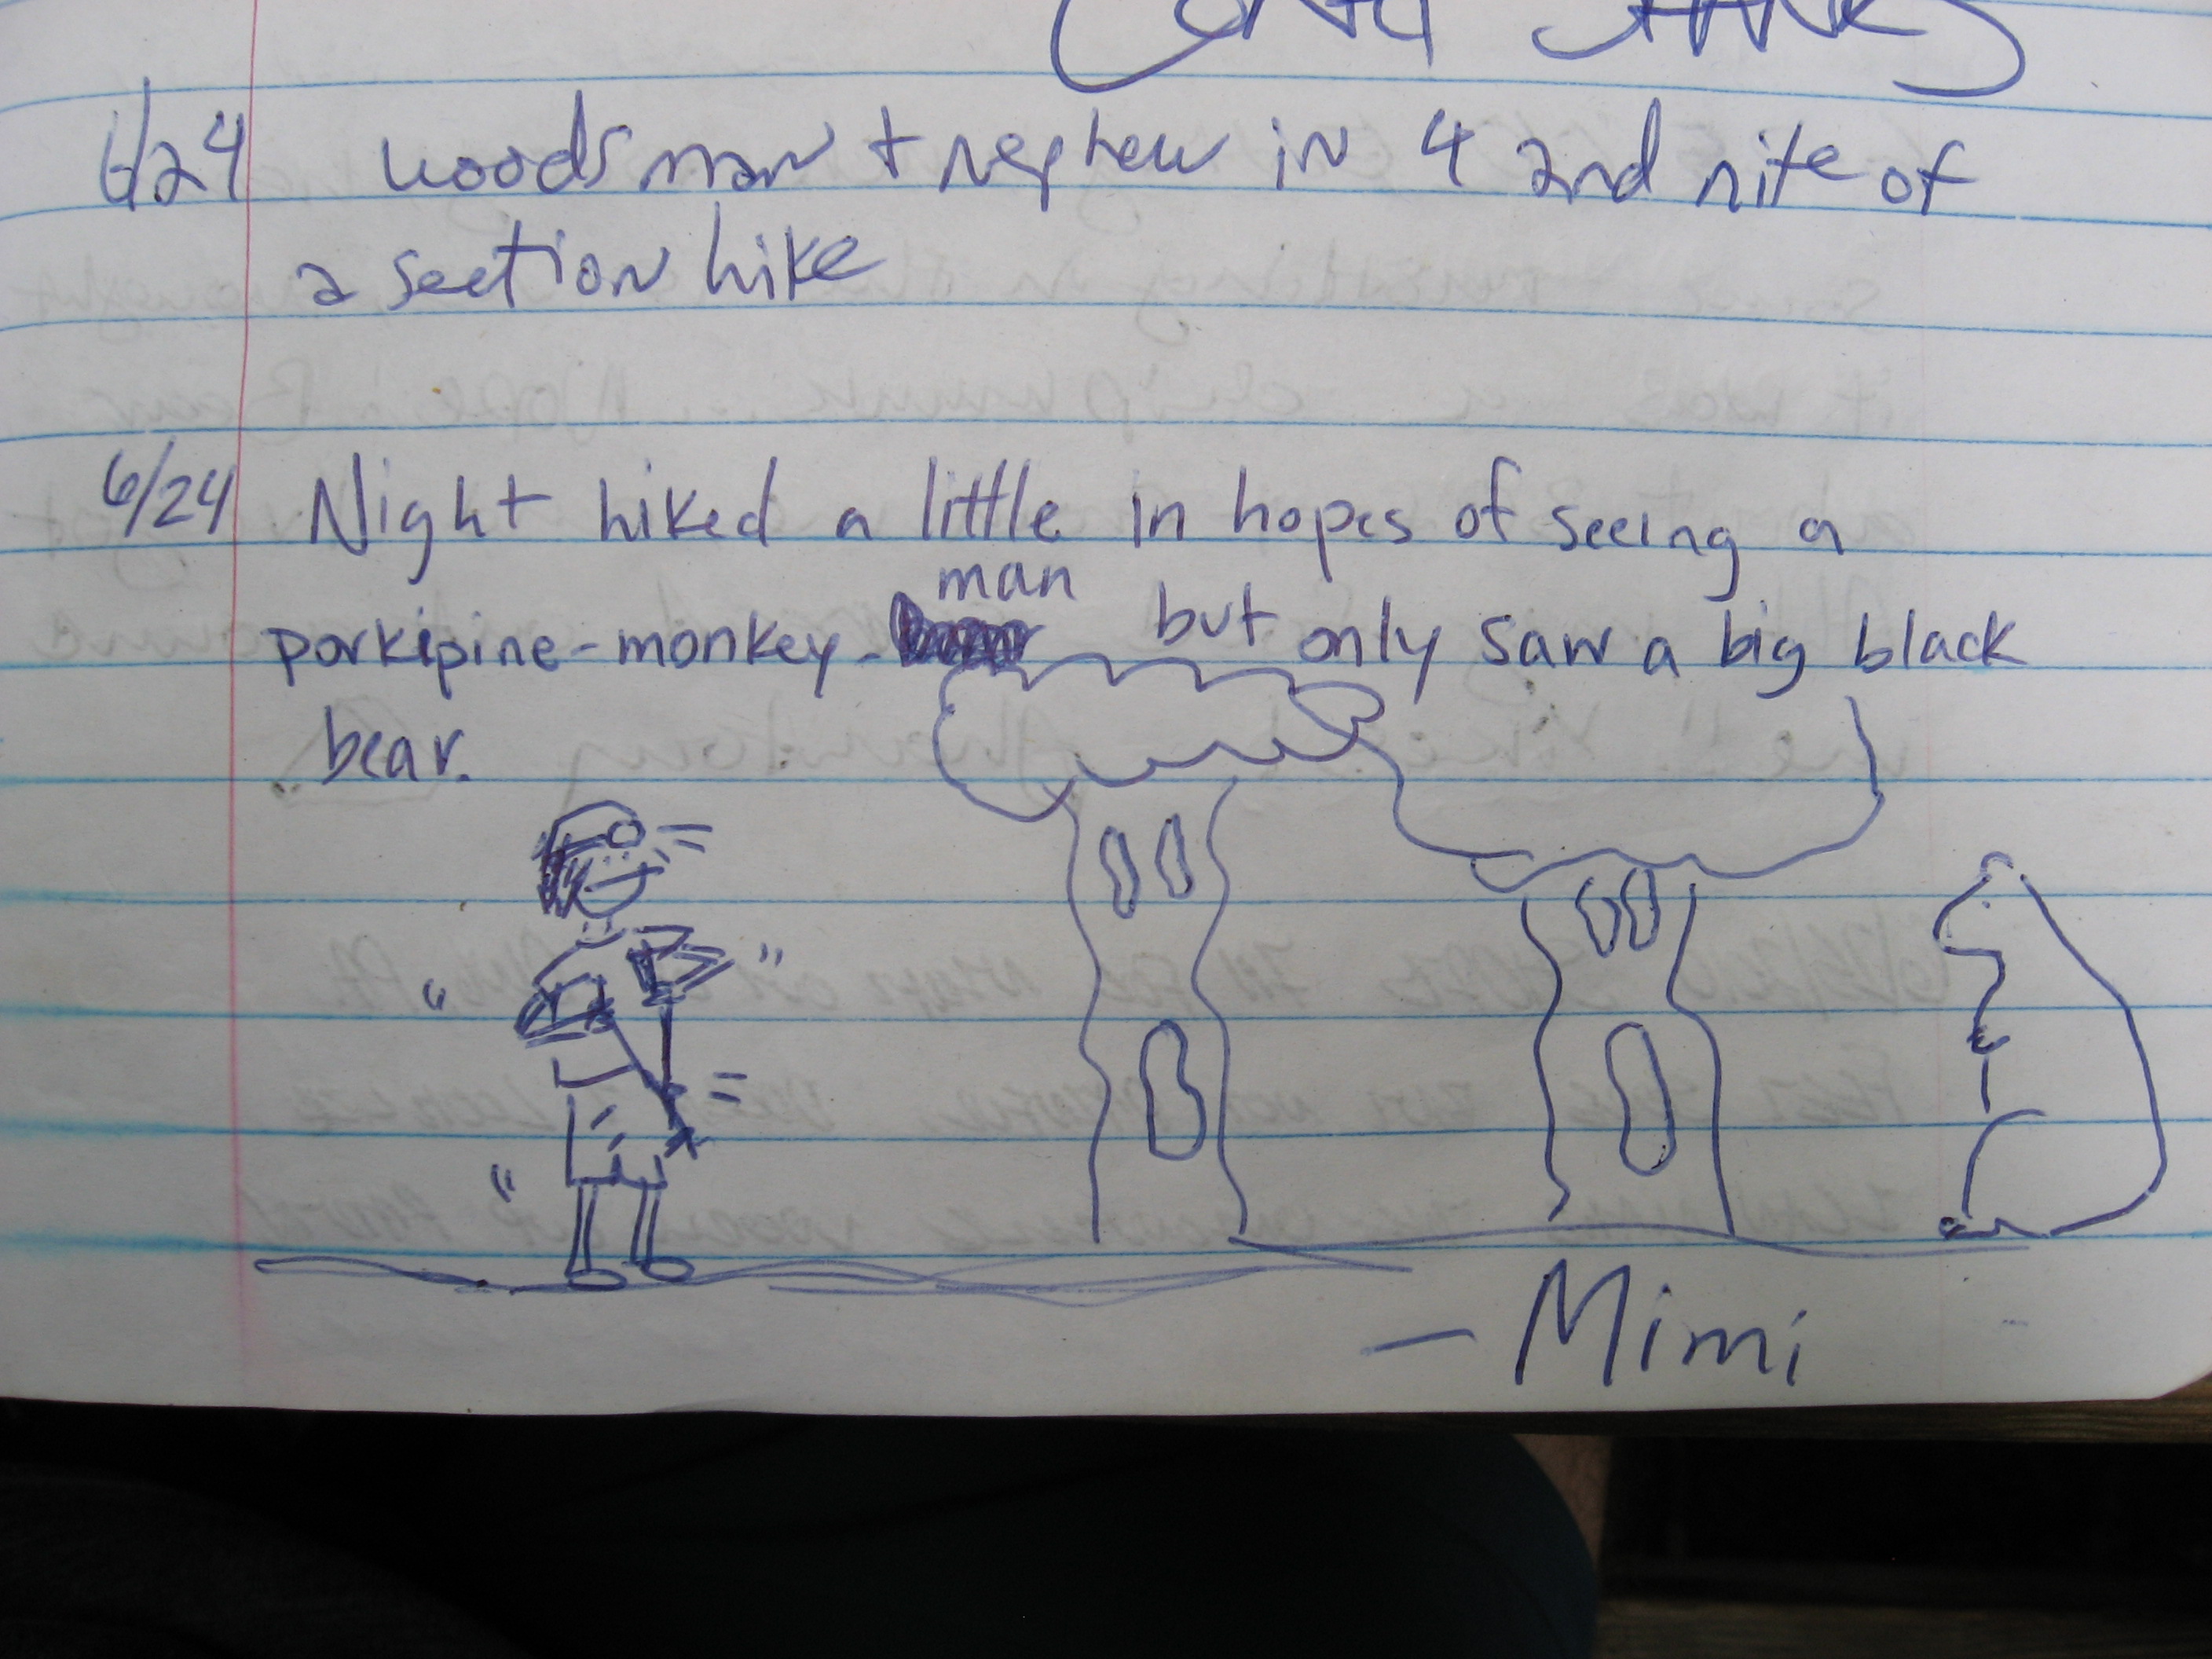 6/24 woodsman + nephew in 4 2nd nite of
a section hike
6/24 Night hiked a little in hopes of seeing a
porkipine-monkey-man but only saw a big black
bear.
- Mimi